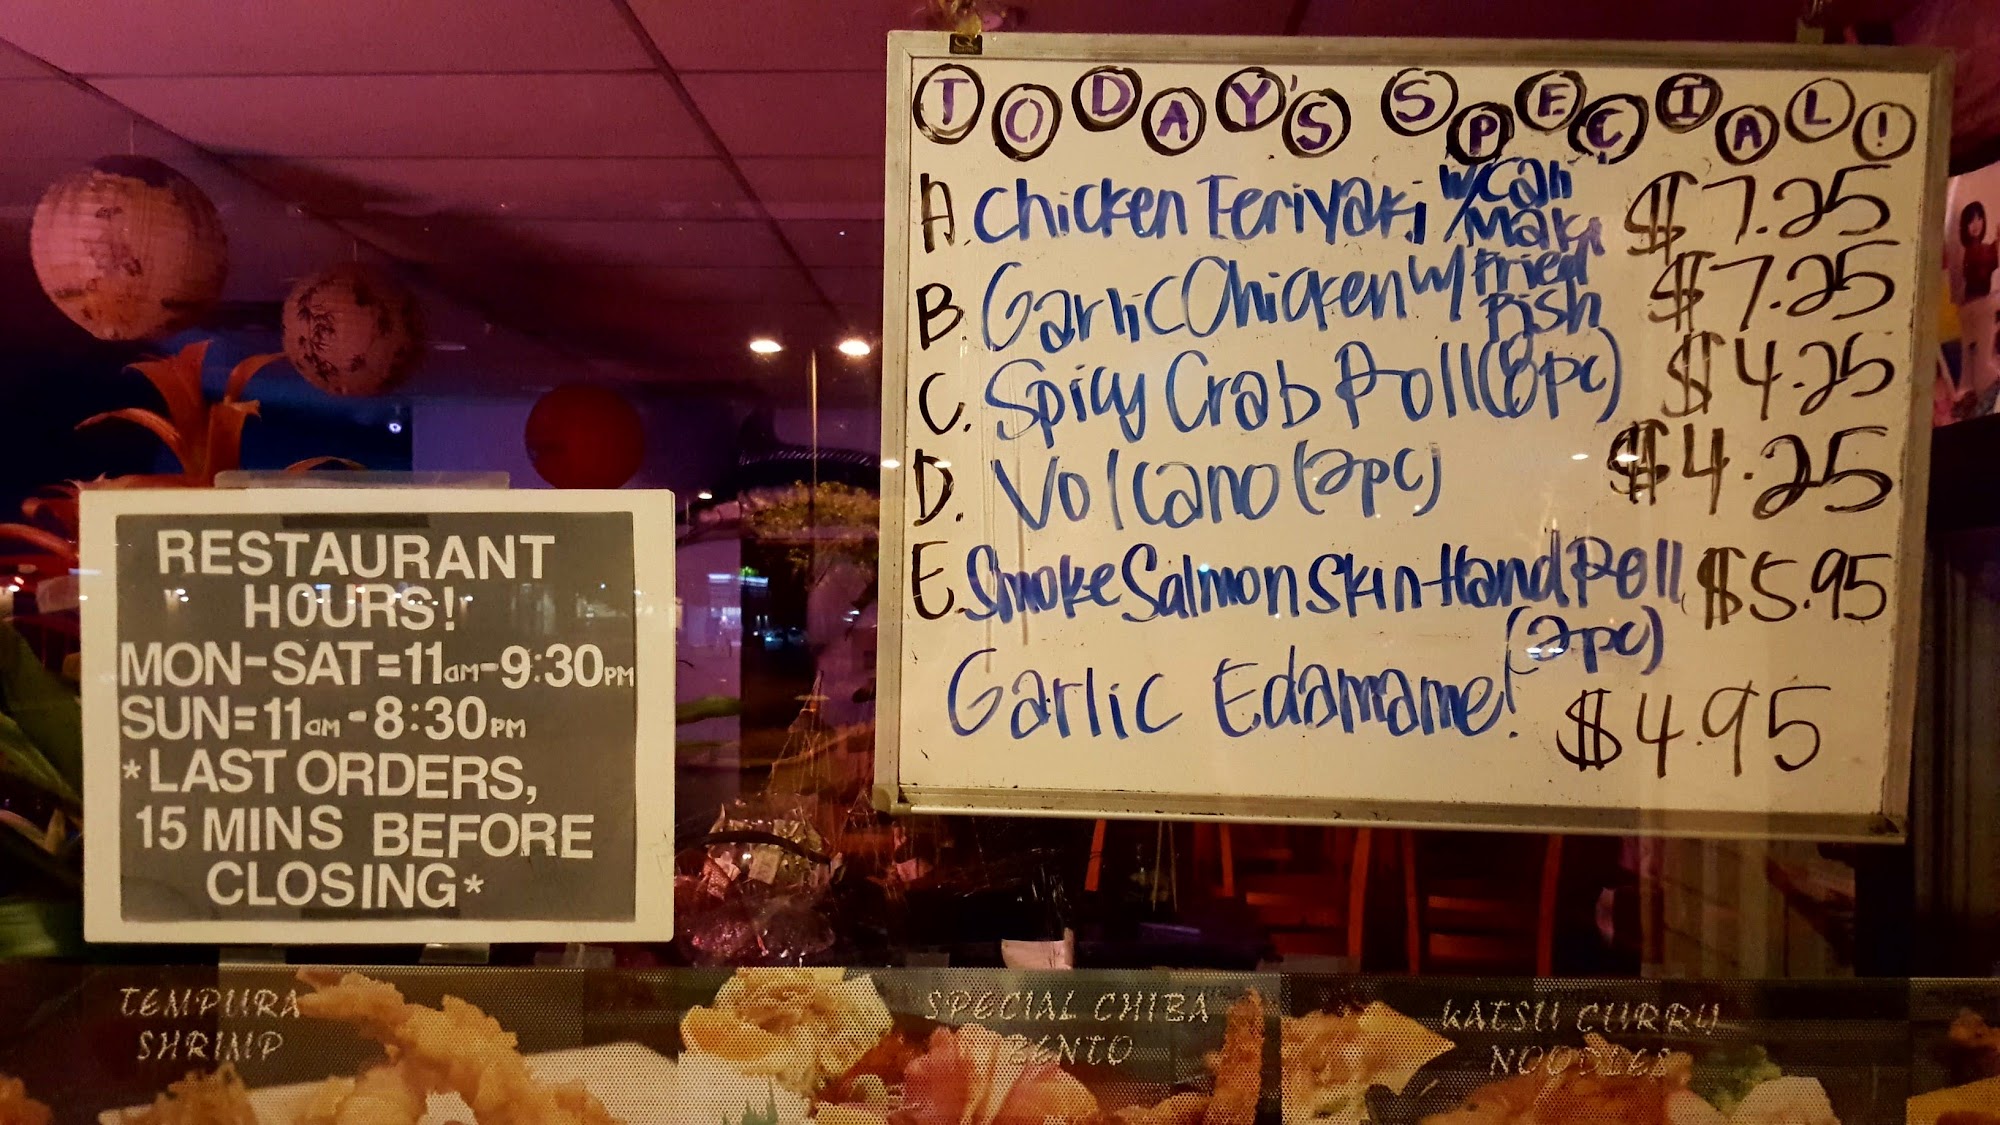 RESTAURANT
HOURS!
MON-SAT=11am-9:30PM
SUN=11am-8:30PM
*LAST ORDERS,
15 MINS BEFORE
CLOSING*
TODAY'S SPECIAL!
A. Chicken Teriyaki w/Cali Maki $7.25
B. Garlic Chicken w/Fried Fish $7.25
C. Spicy Crab Roll (8pc) $4.25
D. Volcano (2pc) $4.25
E. Smoke Salmon Skin Hand Roll $5.95
(2pc)
Garlic Edamame! $4.95
TEMPURA
SHRIMP
SPECIAL CHIBA
BENTO
KATSU CURRY
NOODLES